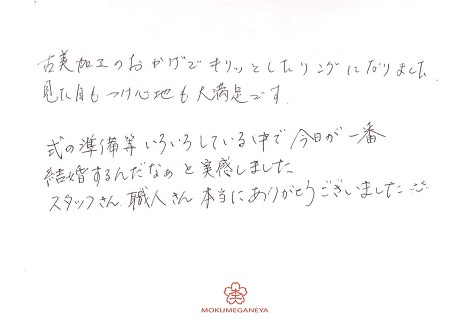 古美加工のおかげでキリッとしたリングになりました
見た目もつけ心地も大満足です.
式の準備等いろいろしている中で今日が一番
結婚するんだなぁと実感しました
スタッフさん 職人さん 本当にありがとうございました
杢
MOKUMEGANEYA